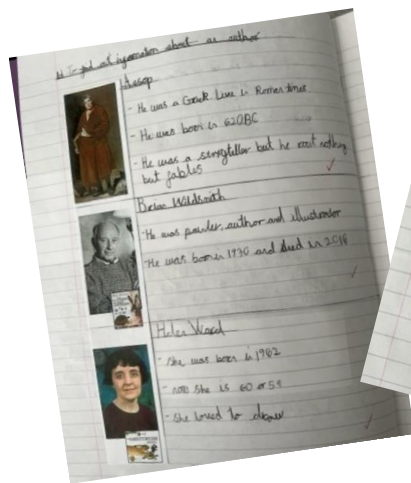 to find out information about an author
Aesop
- He was a Greek Live in Roman times.
- He was born in 620BC
- He was a storyteller but he root nothing
but fables
Brian Wildsmith
- He was painter, author and illustrator
- He was born in 1930 and died in 2016
Helen Ward
- she was born in 1962
- now she is 60 or 59
- she loved to